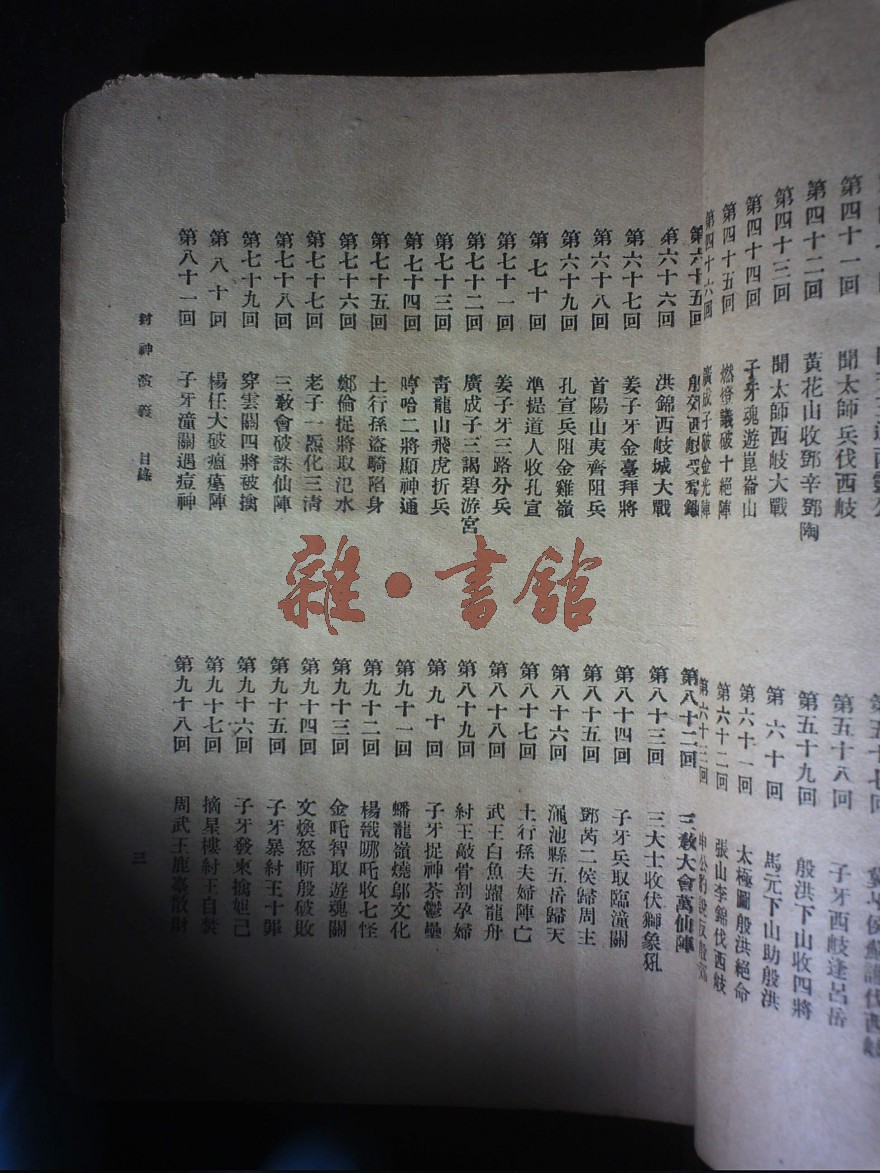 第四十一回 聞太師兵伐西岐
第四十二回 黃花山收鄧辛鄧陶
第四十三回 聞太師西岐大戰
第四十四回 子牙魂遊崑崙山
第四十五回 燃燈議破十絕陣
第四十六回 廣成子破金光陣
第五十七回 冀州侯蘇護伐西岐
第五十八回 子牙西岐逢呂岳
第五十九回 殷洪下山收四將
第六十回 馬元下山助殷洪
第六十一回 太極圖殷洪絕命
第六十二回 張山李錦伐西岐
第六十三回 申公豹說反殷
第六十五回 殷郊西岐受犁鋤
第六十六回 洪錦西岐城大戰
第六十七回 姜子牙金臺拜將
第六十八回 首陽山夷齊阻兵
第六十九回 孔宣兵阻金雞嶺
第七十回 準提道人收孔宣
第七十一回 姜子牙三路分兵
第七十二回 廣成子三謁碧游宮
第七十三回 靑龍山飛虎折兵
第七十四回 哼哈二將顯神通
第七十五回 土行孫盜騎陷身
第七十六回 鄭倫捉將取汜水
第七十七回 老子一炁化三淸
第七十八回 三敎會破誅仙陣
第七十九回 穿雲關四將被擒
第八十回 楊任大破瘟𤷫陣
第八十一回 子牙潼關遇痘神
第八十二回 三敎大會萬仙陣
第八十三回 三大士收伏獅象犼
第八十四回 子牙兵取臨潼關
第八十五回 鄧芮二侯歸周主
第八十六回 澠池縣五岳歸天
第八十七回 土行孫夫婦陣亡
第八十八回 武王白魚躍龍舟
第八十九回 紂王敲骨剖孕婦
第九十回 子牙捉神荼鬱壘
第九十一回 蟠龍嶺燒鄔文化
第九十二回 楊戩哪吒收七怪
第九十三回 金吒智取遊魂關
第九十四回 文煥怒斬殷破敗
第九十五回 子牙暴紂王十罪
第九十六回 子牙發柬擒妲己
第九十七回 摘星樓紂王自焚
第九十八回 周武王鹿臺散財
封神演義 目錄
三
雜·書館